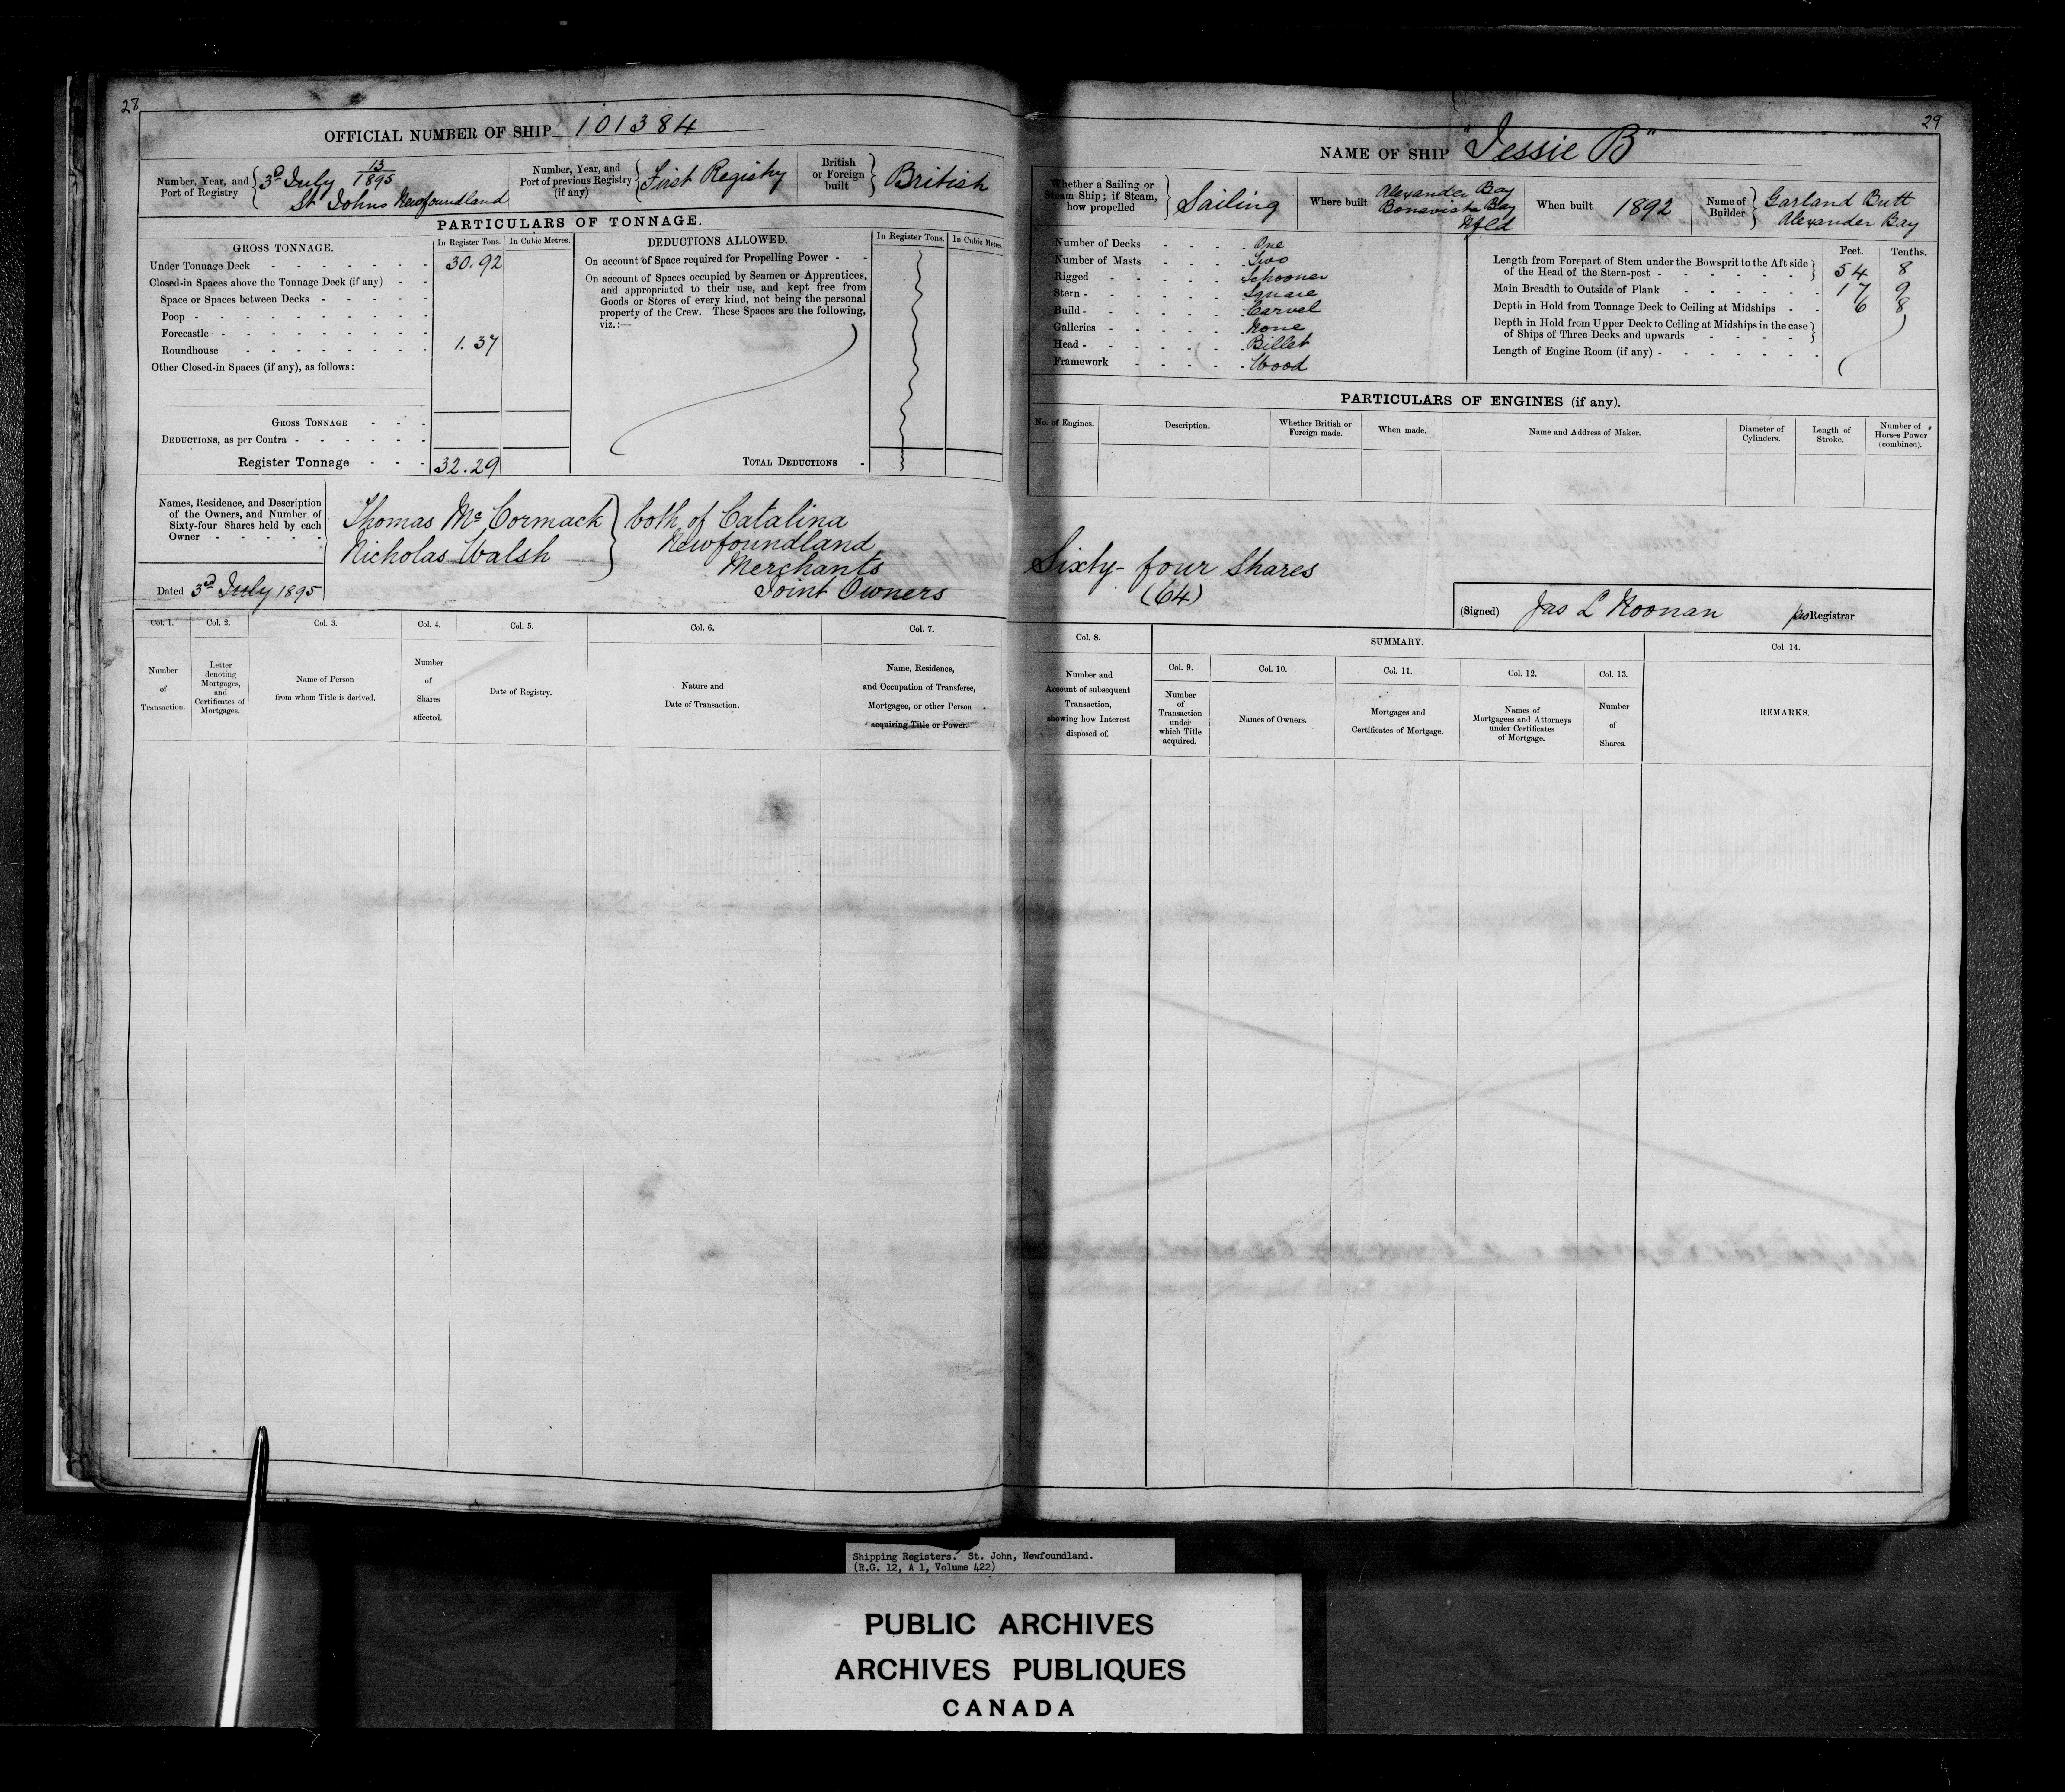 28
OFFICIAL NUMBER OF SHIP 101384
Number, Year, and Port of Registry
3d July 13/1895
St Johns Newfoundland
Number, Year, and Port of previous Registry (if any)
First Registry
British or Foreign built
British
PARTICULARS OF TONNAGE.
GROSS TONNAGE.
In Register Tons.
In Cubic Metres.
Under Tonnage Deck 30.92
Closed-in Spaces above the Tonnage Deck (if any)
Space or Spaces between Decks
Poop
Forecastle
Roundhouse 1.37
Other Closed-in Spaces (if any), as follows:
GROSS TONNAGE
DEDUCTIONS, as per Contra
Register Tonnage 32.29
DEDUCTIONS ALLOWED.
In Register Tons.
In Cubic Metres.
On account of Space required for Propelling Power
On account of Spaces occupied by Seamen or Apprentices,
and appropriated to their use, and kept free from
Goods or Stores of every kind, not being the personal
property of the Crew. These Spaces are the following,
viz.:—
TOTAL DEDUCTIONS
Names, Residence, and Description
of the Owners, and Number of
Sixty-four Shares held by each
Owner
Thomas McCormack
Nicholas Walsh
both of Catalina
Newfoundland
Merchants
Joint Owners
Dated 3rd July 1895
Col. 1.
Number
of
Transaction.
Col. 2.
Letter
denoting
Mortgages,
and
Certificates of
Mortgages.
Col. 3.
Name of Person
from whom Title is derived.
Col. 4.
Number
of
Shares
affected.
Col. 5.
Date of Registry.
Col. 6.
Nature and
Date of Transaction.
Col. 7.
Name, Residence,
and Occupation of Transferee,
Mortgagee, or other Person
acquiring Title or Power.
29
NAME OF SHIP "Jessie B"
Whether a Sailing or
Steam Ship; if Steam,
how propelled
Sailing
Where built
Alexander Bay
Bonavista Bay
Nfld
When built 1892
Name of Builder
Garland Butt
Alexander Bay
Number of Decks One
Number of Masts Two
Rigged Schooner
Stern Square
Build Carvel
Galleries None
Head Billet
Framework Wood
Feet. Tenths.
Length from Forepart of Stem under the Bowsprit to the Aft side
of the Head of the Stern-post 54 8
Main Breadth to Outside of Plank 17 9
Depth in Hold from Tonnage Deck to Ceiling at Midships 6 8
Depth in Hold from Upper Deck to Ceiling at Midships in the case
of Ships of Three Decks and upwards
Length of Engine Room (if any)
PARTICULARS OF ENGINES (if any).
No. of Engines.
Description.
Whether British or
Foreign made.
When made.
Name and Address of Maker.
Diameter of
Cylinders.
Length of
Stroke.
Number of
Horses Power
(combined).
Sixty-four Shares
(64)
(Signed) Jas L Noonan pro Registrar
Col. 8.
Number and
Account of subsequent
Transaction,
showing how Interest
disposed of.
SUMMARY.
Col. 9.
Number
of
Transaction
under
which Title
acquired.
Col. 10.
Names of Owners.
Col. 11.
Mortgages and
Certificates of Mortgage.
Col. 12.
Names of
Mortgagees and Attorneys
under Certificates
of Mortgage.
Col. 13.
Number
of
Shares.
Col 14.
REMARKS.
Shipping Registers. St. John, Newfoundland.
(R.G. 12, A 1, Volume 422)
PUBLIC ARCHIVES
ARCHIVES PUBLIQUES
CANADA